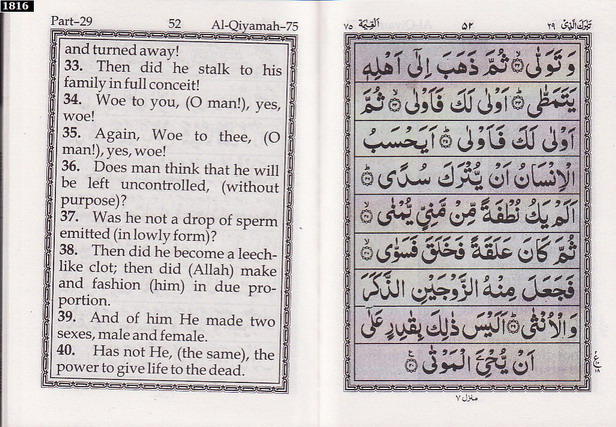 1816
Part–29 52 Al-Qiyamah-75
and turned away!
33. Then did he stalk to his
family in full conceit!
34. Woe to you, (O man!), yes,
woe!
35. Again, Woe to thee, (O
man!), yes, woe!
36. Does man think that he will
be left uncontrolled, (without
purpose)?
37. Was he not a drop of sperm
emitted (in lowly form)?
38. Then did he become a leech-
like clot; then did (Allah) make
and fashion (him) in due pro-
portion.
39. And of him He made two
sexes, male and female.
40. Has not He, (the same), the
power to give life to the dead.
تبٰرك الذی ۲۹ ۵۲ القیٰمة ۷۵
وَتَوَلّٰى ۙ‏﴿۳۲﴾ ثُمَّ ذَهَبَ اِلٰٓى اَهْلِهٖ
يَتَمَطّٰى ؕ‏﴿۳۳﴾ اَوْلٰى لَكَ فَاَوْلٰى ۙ‏﴿۳۴﴾ ثُمَّ
اَوْلٰى لَكَ فَاَوْلٰى ؕ‏﴿۳۵﴾ اَيَحْسَبُ
الْاِنْسَانُ اَنْ يُّتْرَكَ سُدًى ؕ‏﴿۳۶﴾
اَلَمْ يَكُ نُطْفَةً مِّنْ مَّنِىٍّ يُّمْنٰى ۙ‏﴿۳۷﴾
ثُمَّ كَانَ عَلَقَةً فَخَلَقَ فَسَوّٰى ۙ‏﴿۳۸﴾
فَجَعَلَ مِنْهُ الزَّوْجَيْنِ الذَّكَرَ
وَالْاُنْثٰى ؕ‏﴿۳۹﴾ اَلَيْسَ ذٰلِكَ بِقٰدِرٍ عَلٰٓى
اَنْ يُّحْیَِۧ الْمَوْتٰى ﴿۴۰﴾
منزل ۷